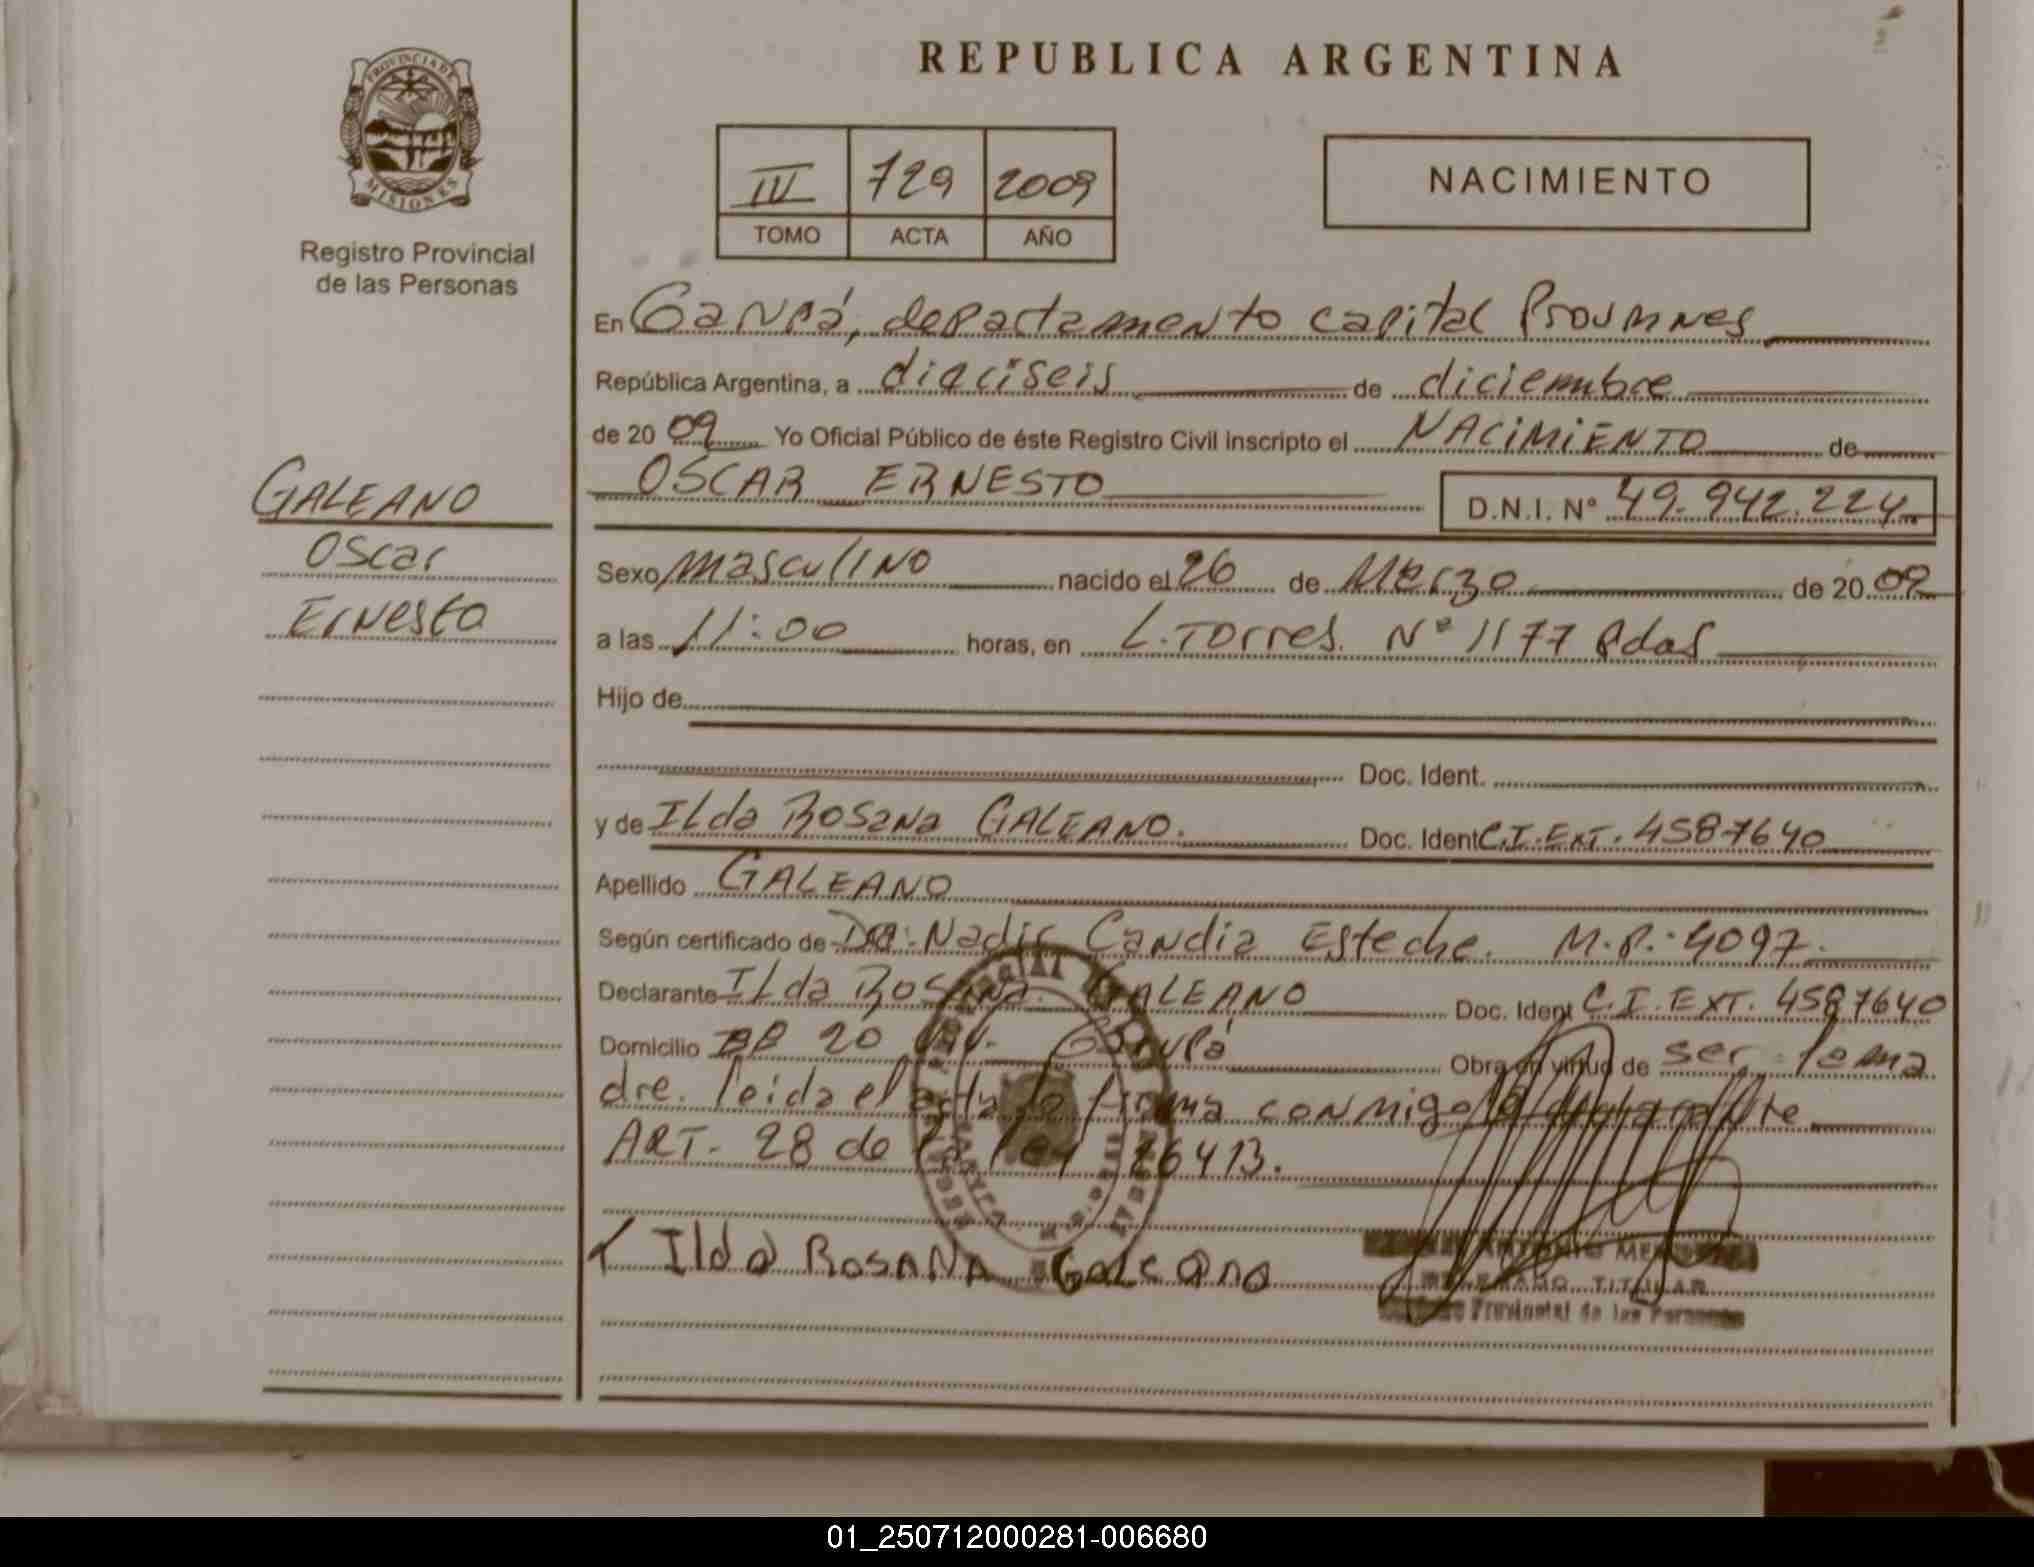 REPUBLICA ARGENTINA
PROVINCIA DE
MISIONES
Registro Provincial
de las Personas
IV 729 2009
TOMO ACTA AÑO
NACIMIENTO
En Garupá, departamento capital Prov Mnes
República Argentina, a dieciseis de diciembre
de 20 09 Yo Oficial Público de éste Registro Civil inscripto el NACIMIENTO de
OSCAR ERNESTO D.N.I. Nº 49.942.224
GALEANO
Oscar
Ernesto
Sexo masculino nacido el 26 de Marzo de 20 09
a las 11:00 horas, en L. Torres. Nº 1177 Pdas
Hijo de
Doc. Ident.
y de Ilda Rosana GALEANO. Doc. Ident C.I. Ext. 4587640
Apellido GALEANO
Según certificado de Nadir Candia Esteche. M.P.: 4097.
Declarante Ilda Rosana GALEANO Doc. Ident C.I. EXT. 4587640
Domicilio BB 20 Viv. Garupá Obra en virtud de ser la ma
dre. leida el acta la firma conmigo la declarante
ART. 28 de la ley 26413.
Ilda ROSANA Galeano
ANTONIO
TITULAR
Provincial de las Personas
01_250712000281-006680